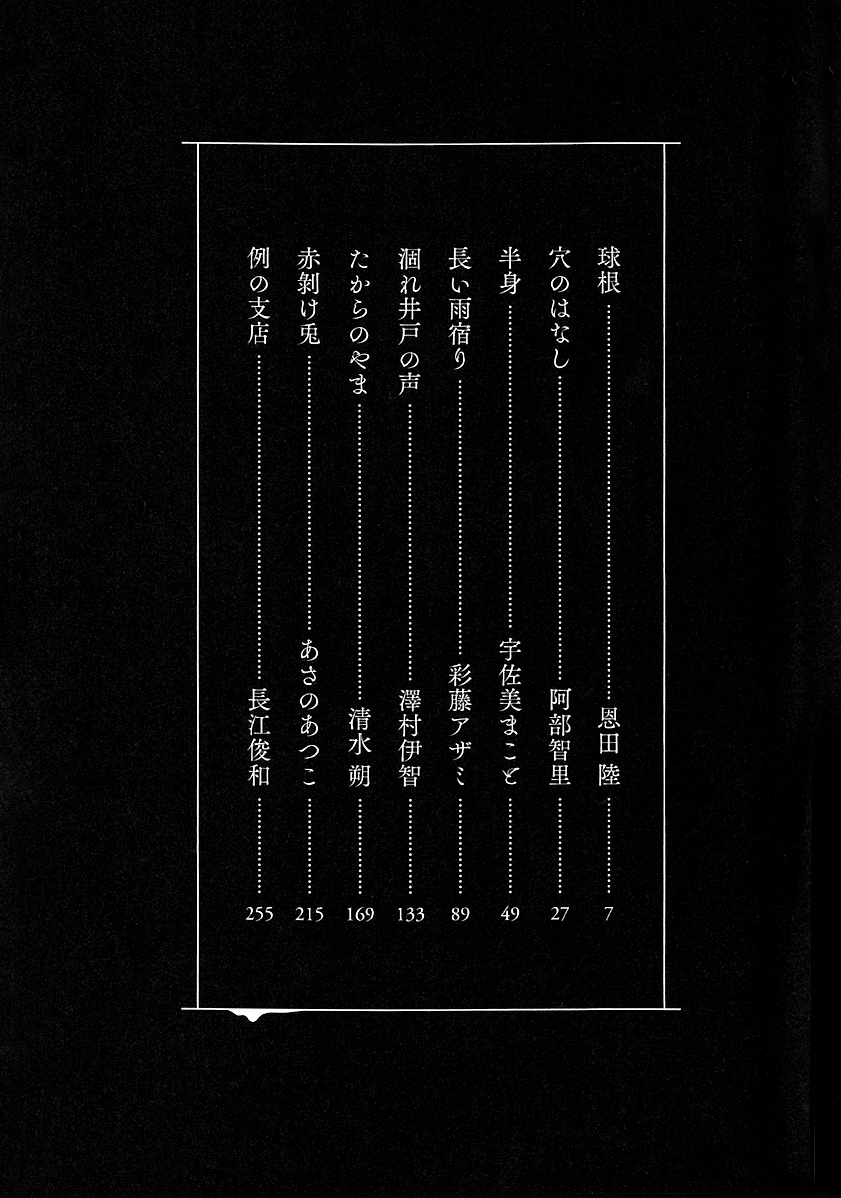 球根 恩田 陸 7
穴のはなし 阿部智里 27
半身 宇佐美まこと 49
長い雨宿り 彩藤アザミ 89
涸れ井戸の声 澤村伊智 133
たからのやま 清水 朔 169
赤剝け兎 あさのあつこ 215
例の支店 長江俊和 255